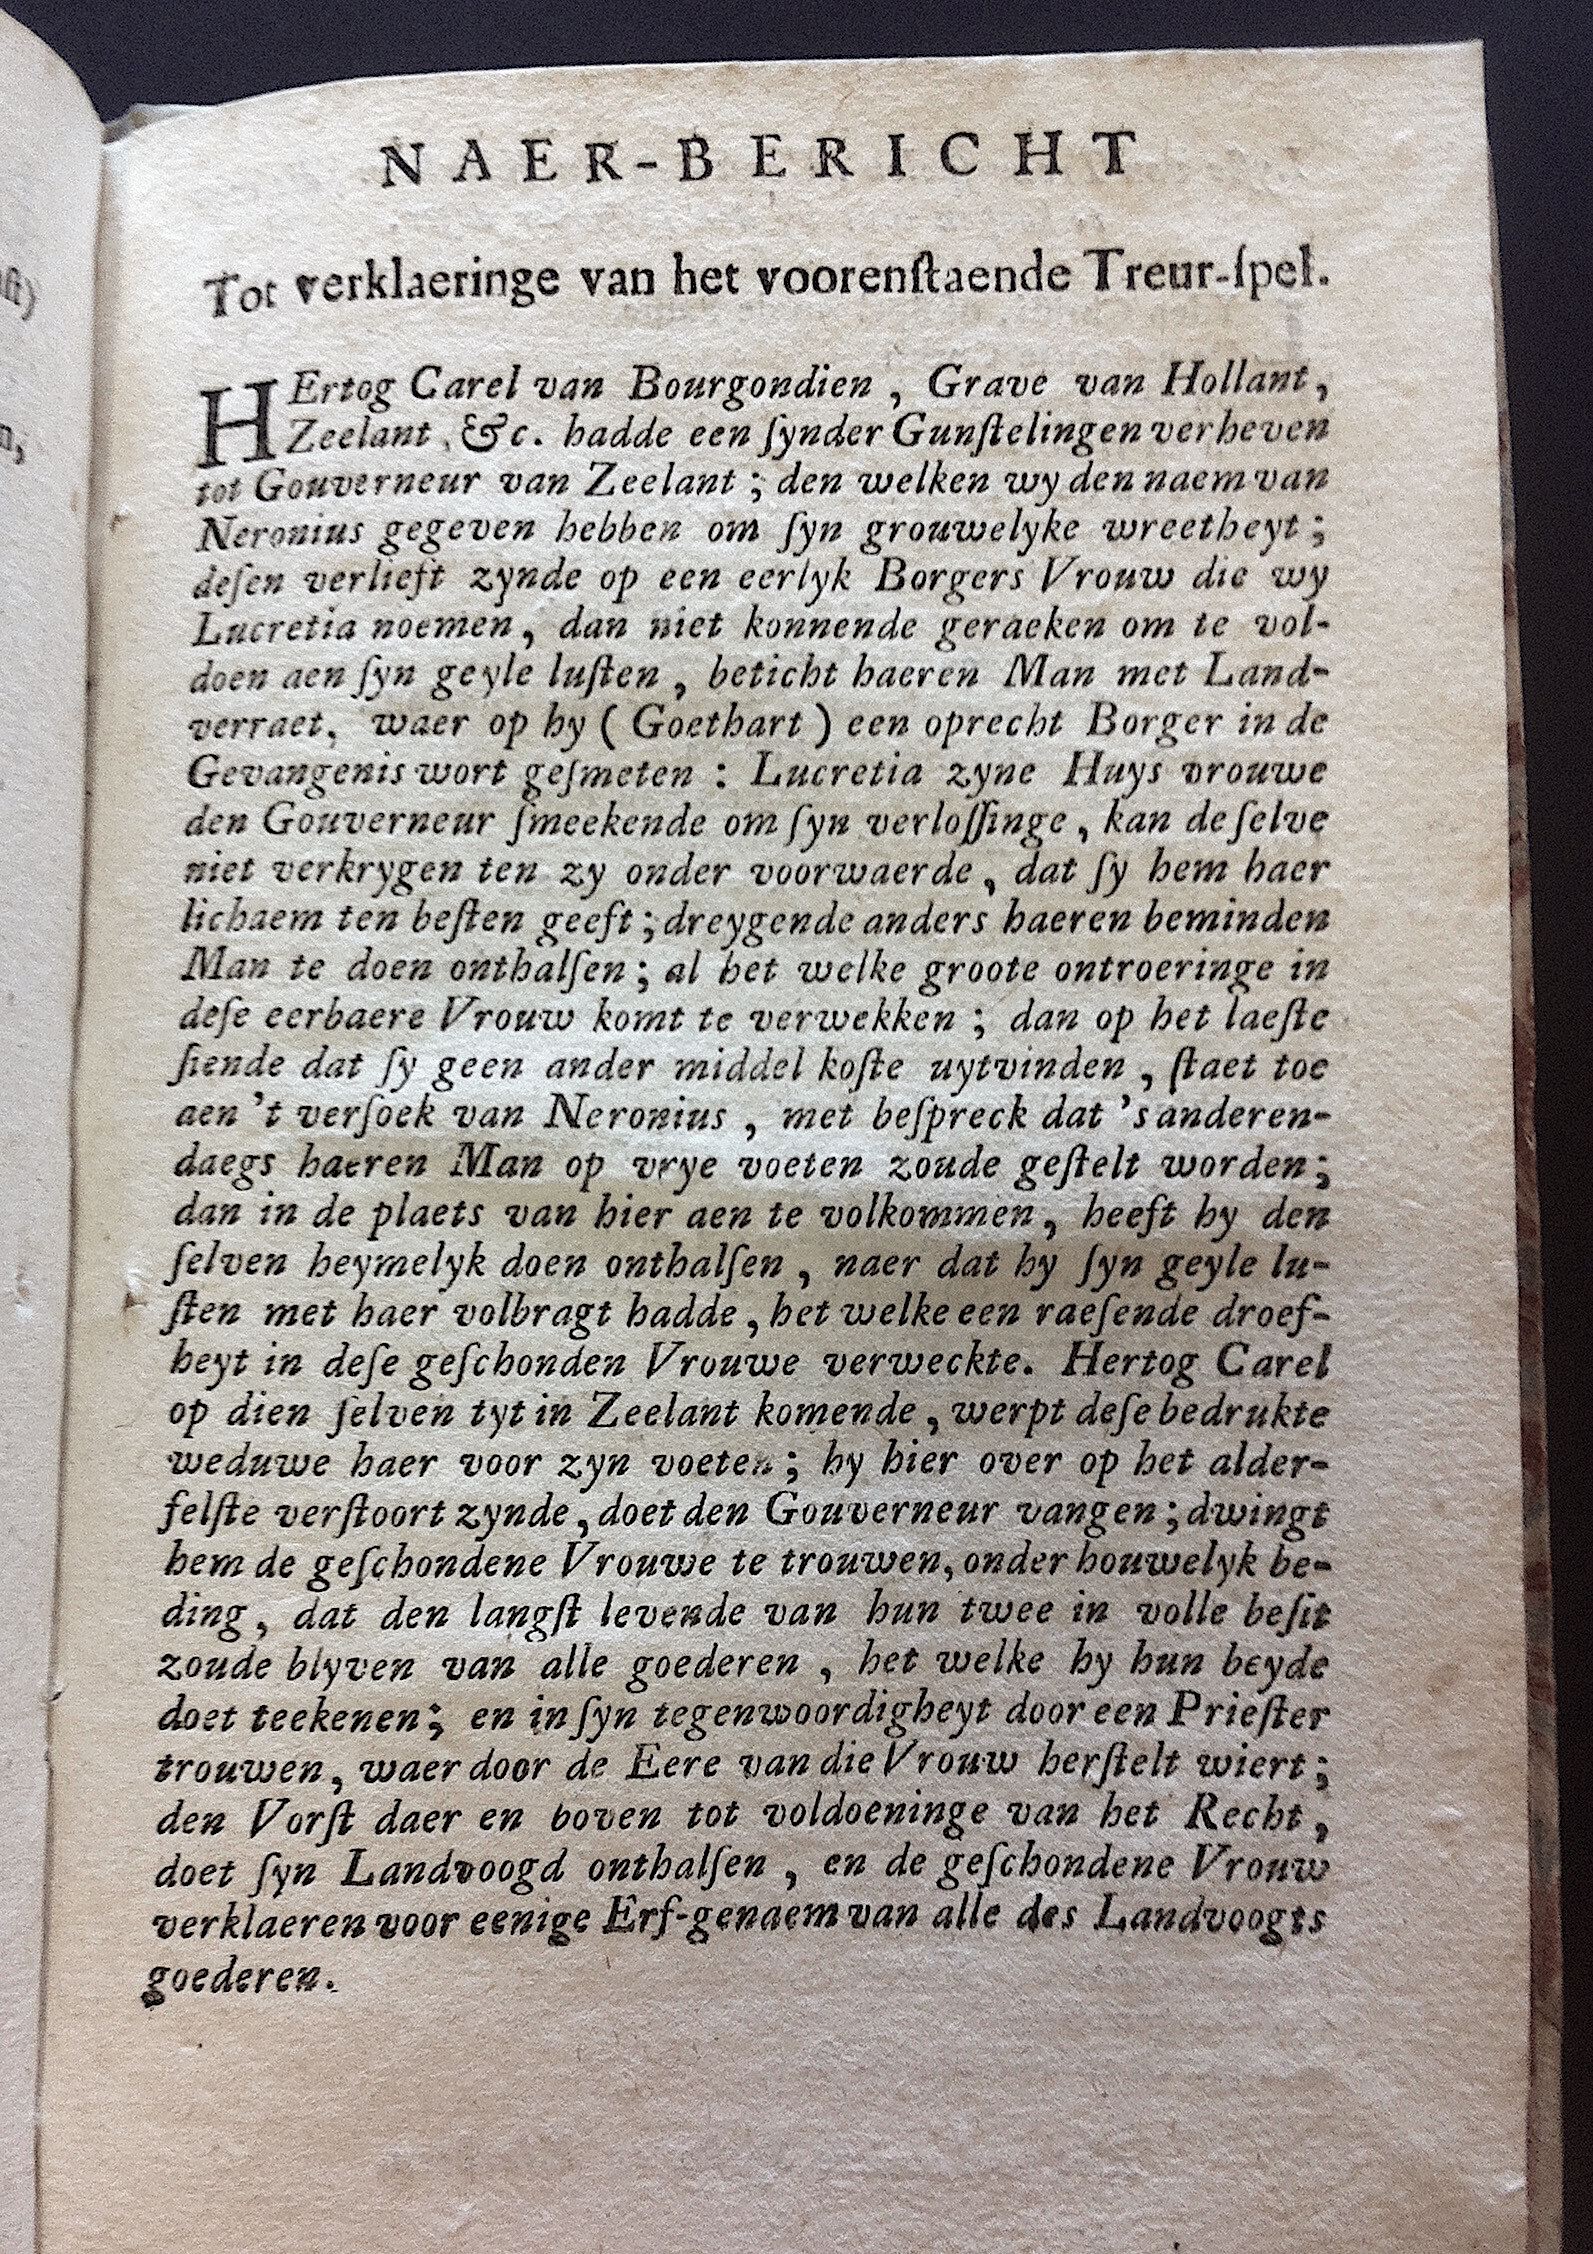 ſt)
n,
NAER-BERICHT
Tot verklaeringe van het voorenſtaende Treur-ſpel.
HErtog Carel van Bourgondien, Grave van Hollant,
Zeelant, &c. hadde een ſynder Gunſtelingen verheven
tot Gouverneur van Zeelant; den welken wy den naem van
Neronius gegeven hebben om ſyn grouwelyke wreetheyt;
deſen verlieft zynde op een eerlyk Borgers Vrouw die wy
Lucretia noemen, dan niet konnende geraeken om te vol-
doen aen ſyn geyle luſten, beticht haeren Man met Land-
verraet, waer op hy (Goethart) een oprecht Borger in de
Gevangenis wort geſmeten: Lucretia zyne Huys vrouwe
den Gouverneur ſmeekende om ſyn verloſſinge, kan de ſelve
niet verkrygen ten zy onder voorwaerde, dat ſy hem haer
lichaem ten beſten geeft; dreygende anders haeren beminden
Man te doen onthalſen; al het welke groote ontroeringe in
deſe eerbaere Vrouw komt te verwekken; dan op het laeſte
ſiende dat ſy geen ander middel koſte uytvinden, ſtaet toe
aen 't verſoek van Neronius, met beſpreck dat 's anderen-
daegs haeren Man op vrye voeten zoude geſtelt worden;
dan in de plaets van hier aen te volkommen, heeft hy den
ſelven heymelyk doen onthalſen, naer dat hy ſyn geyle lu-
ſten met haer volbragt hadde, het welke een raeſende droef-
heyt in deſe geſchonden Vrouwe verweckte. Hertog Carel
op dien ſelven tyt in Zeelant komende, werpt deſe bedrukte
weduwe haer voor zyn voeten; hy hier over op het alder-
felſte verſtoort zynde, doet den Gouverneur vangen; dwingt
hem de geſchondene Vrouwe te trouwen, onder houwelyk be-
ding, dat den langſt levende van hun twee in volle beſit
zoude blyven van alle goederen, het welke hy hun beyde
doet teekenen; en in ſyn tegenwoordigheyt door een Prieſter
trouwen, waer door de Eere van die Vrouw herſtelt wiert;
den Vorſt daer en boven tot voldoeninge van het Recht,
doet ſyn Landvoogd onthalſen, en de geſchondene Vrouw
verklaeren voor eenige Erf-genaem van alle des Landvoogts
goederen.